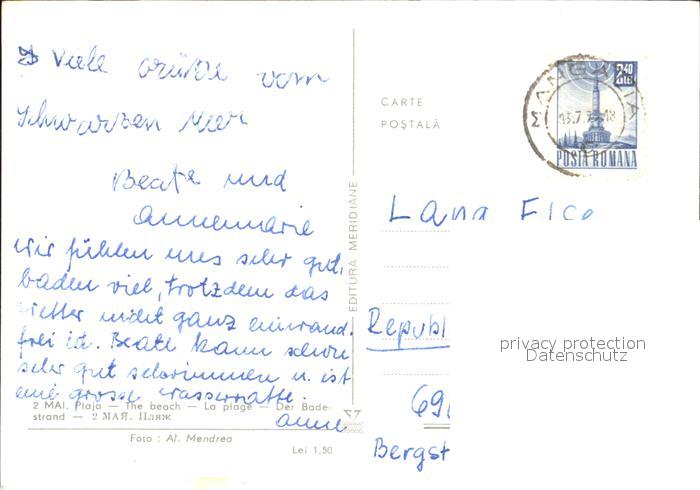 Viele Grüße vom
Schwarzen Meer
Beate und
Annemarie
Wir fühlen uns sehr gut,
baden viel, trotzdem das
Wetter nicht ganz einwand-
frei ist. Beate kann schon
sehr gut schwimmen u. ist
eine grosse Wasserratte.
Anne
2 MAI. Plaja — The beach — La plage — Der Bade-
strand — 2 МАЯ. Пляж
Foto : Al. Mendrea
Lei 1,50
EDITURA MERIDIANE
CARTE
POȘTALĂ
MANGALIA
13.7.7 -18
2,40
LEI
POSTA ROMANA
Lana
Republ
privacy protection
Datenschutz
69
Bergst